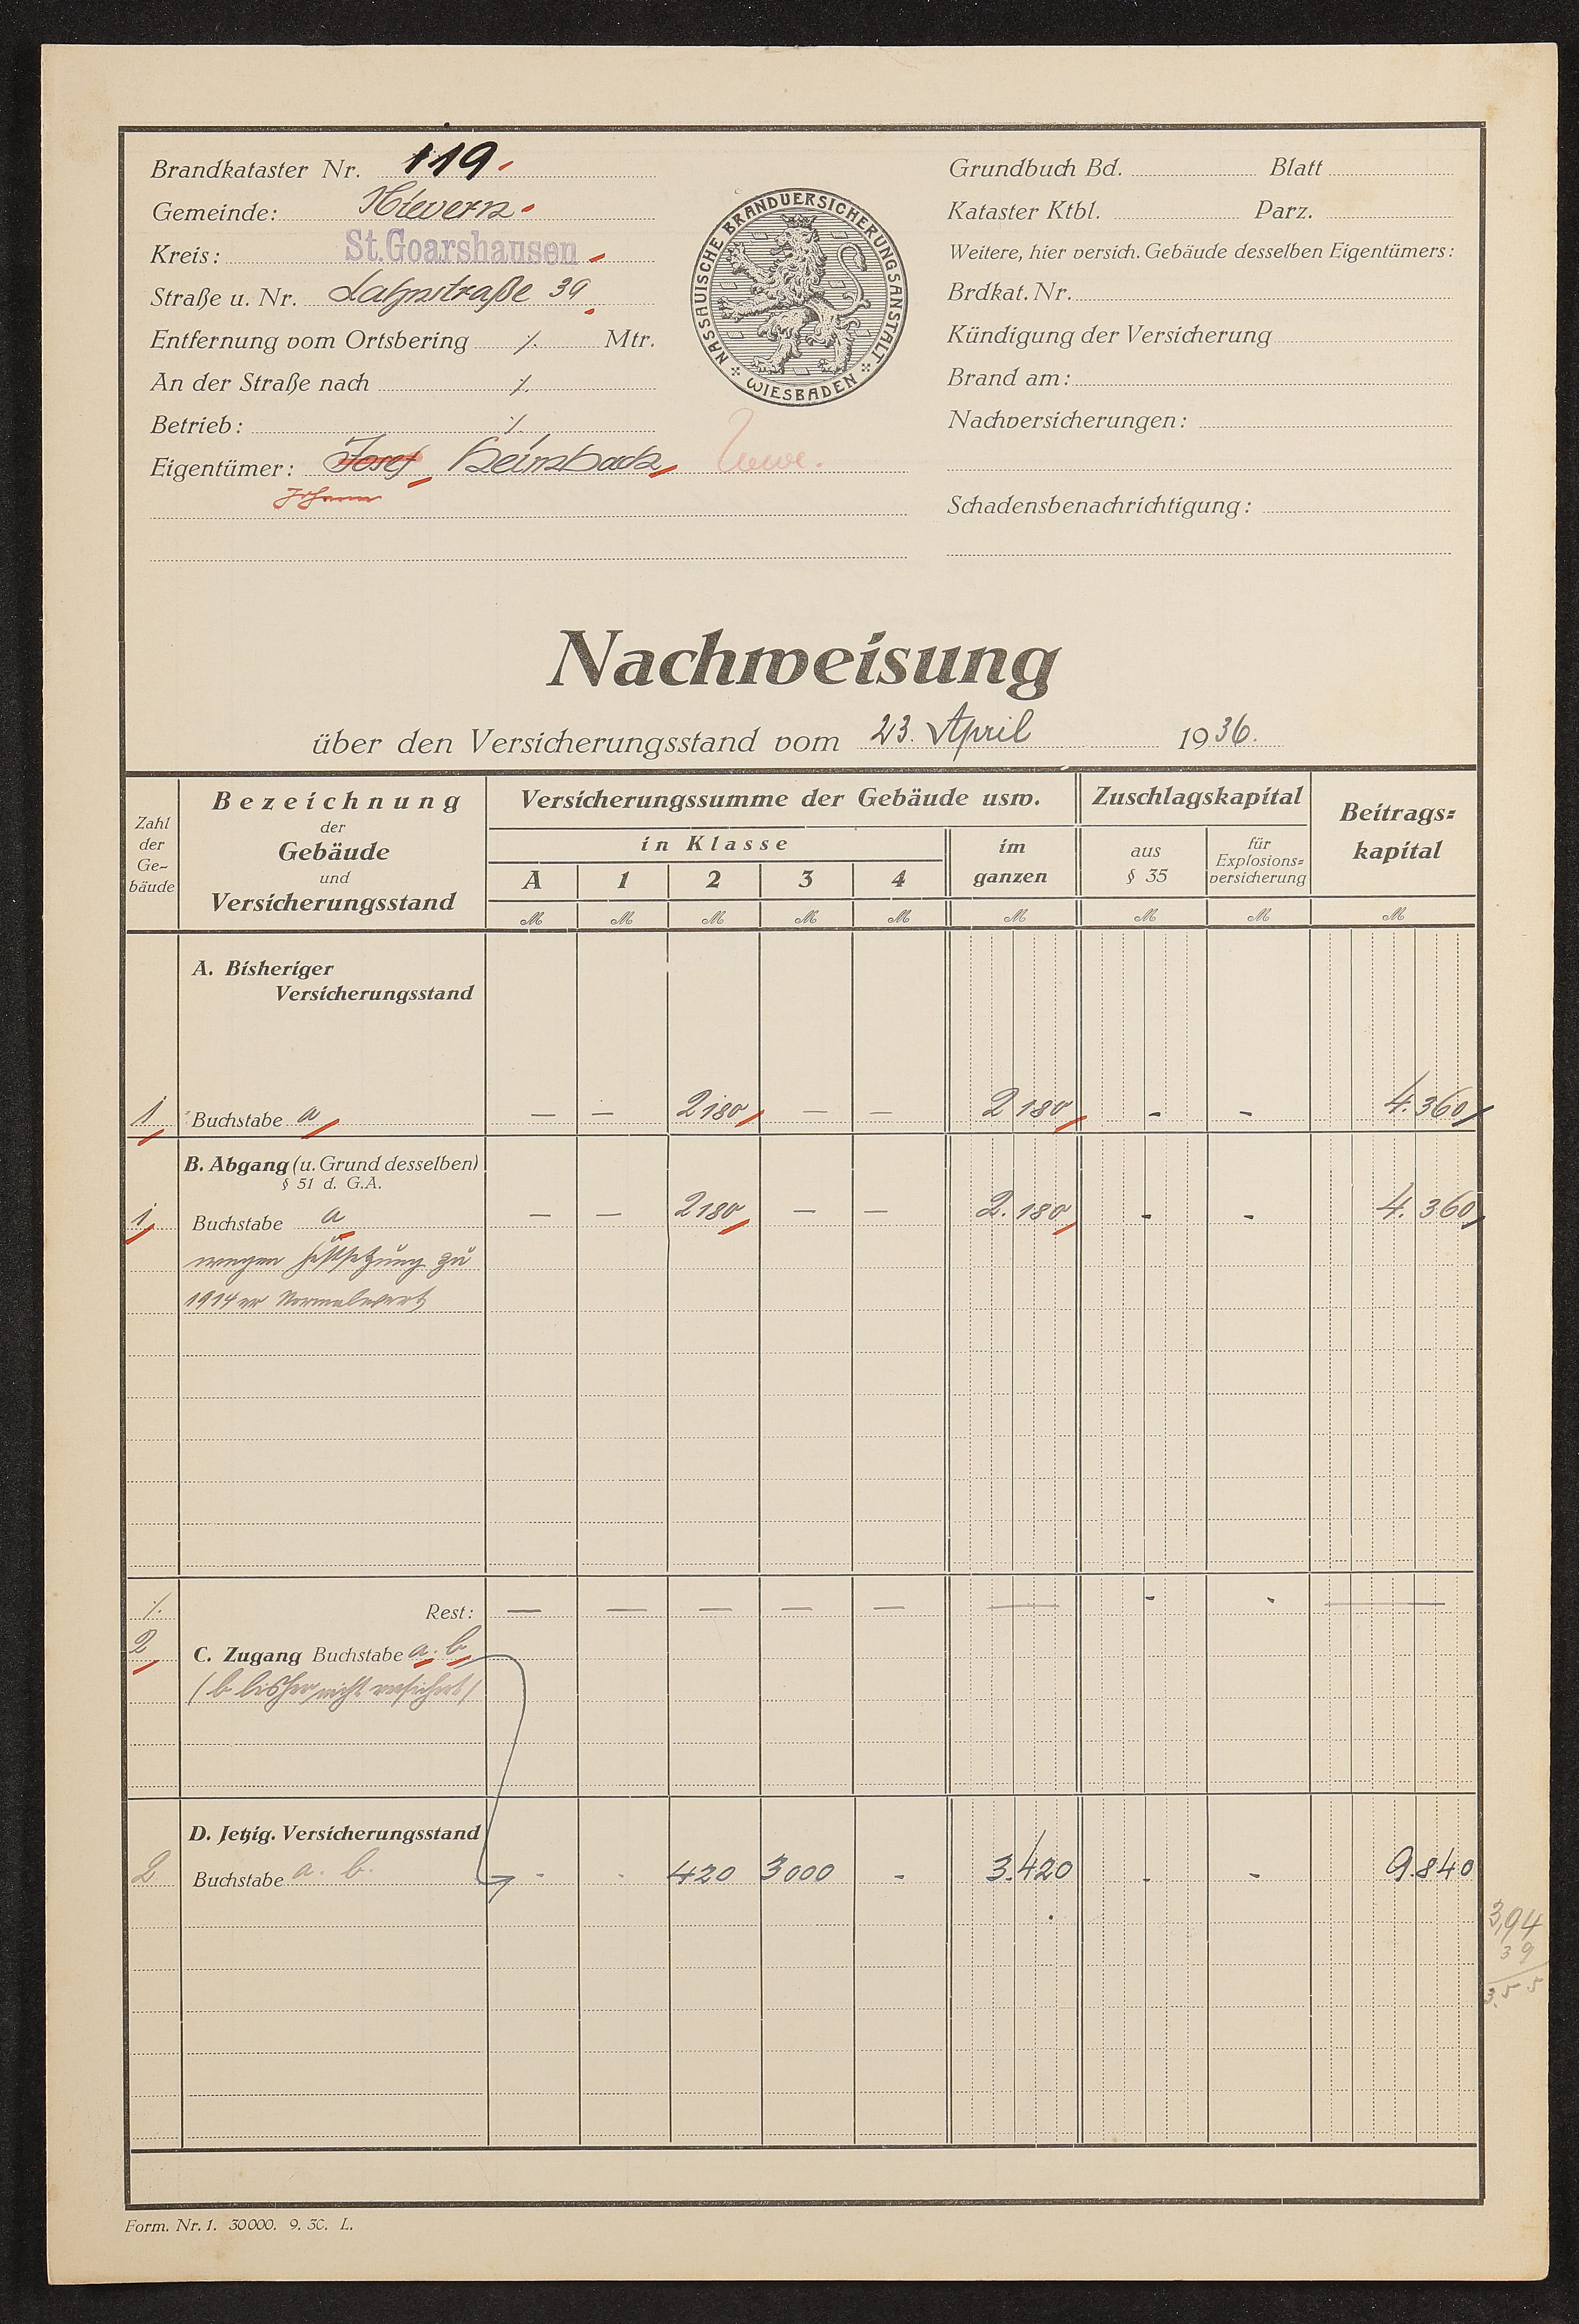 Brandkataster Nr. 119.
Gemeinde: Nievern
Kreis: St. Goarshausen
Straße u. Nr. Lahnstraße 39
Entfernung vom Ortsbering ./. Mtr.
An der Straße nach ./.
Betrieb: ./.
Eigentümer: Josef Heimbach Wwe.
Johann
NASSAUISCHE BRANDVERSICHERUNGSANSTALT
WIESBADEN
Grundbuch Bd. Blatt
Kataster Ktbl. Parz.
Weitere, hier versich. Gebäude desselben Eigentümers:
Brdkat. Nr.
Kündigung der Versicherung
Brand am:
Nachversicherungen:
Schadensbenachrichtigung:
Nachweisung
über den Versicherungsstand vom 23. April 1936.
Zahl der Ge-bäude
Bezeichnung der Gebäude und Versicherungsstand
Versicherungssumme der Gebäude usw.
in Klasse
A 1 2 3 4
im ganzen
Zuschlagskapital
aus § 35
für Explosions=versicherung
Beitrags=kapital
M M M M M M M M M
A. Bisheriger
Versicherungsstand
1 Buchstabe a — — 2180 — — 2180 - - 4.360
B. Abgang (u. Grund desselben)
§ 51 d. G.A.
1 Buchstabe a — — 2180 — — 2.180 - - 4.360
wegen Festsetzung zu
1914er Normalwert
./. Rest: — — — — — — - - —
2 C. Zugang Buchstabe a. b.
(b bisher nicht versichert)
D. Jetzig. Versicherungsstand
2 Buchstabe a. b. - - 420 3000 - 3.420 - - 9.840
3,94
39
3.55
Form. Nr. 1. 30000. 9. 30. L.